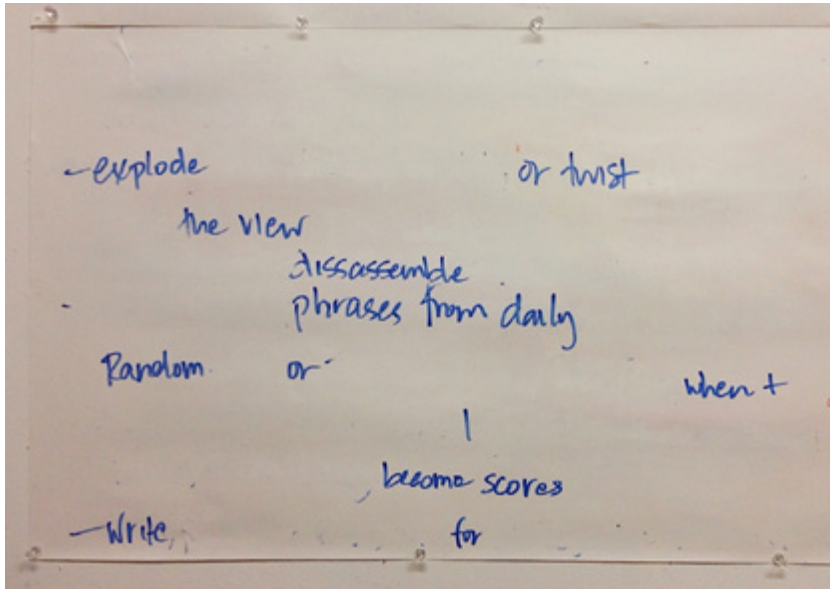 - explode or twist
the view
dissassemble
- phrases from daily
Random or
when +
|
become scores
- Write for